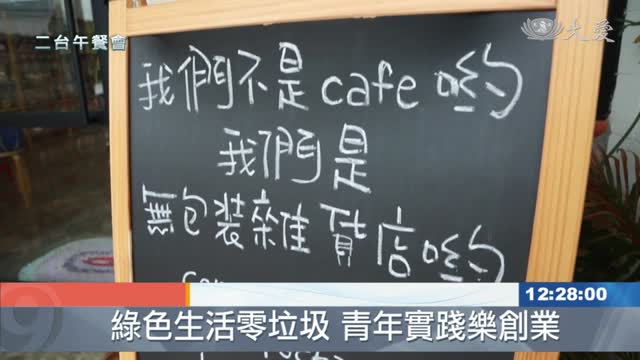 二台午餐會
大愛
我們不是cafe喲
我們是
無包裝雜貨店喲
12:28:00
綠色生活零垃圾 青年實踐樂創業